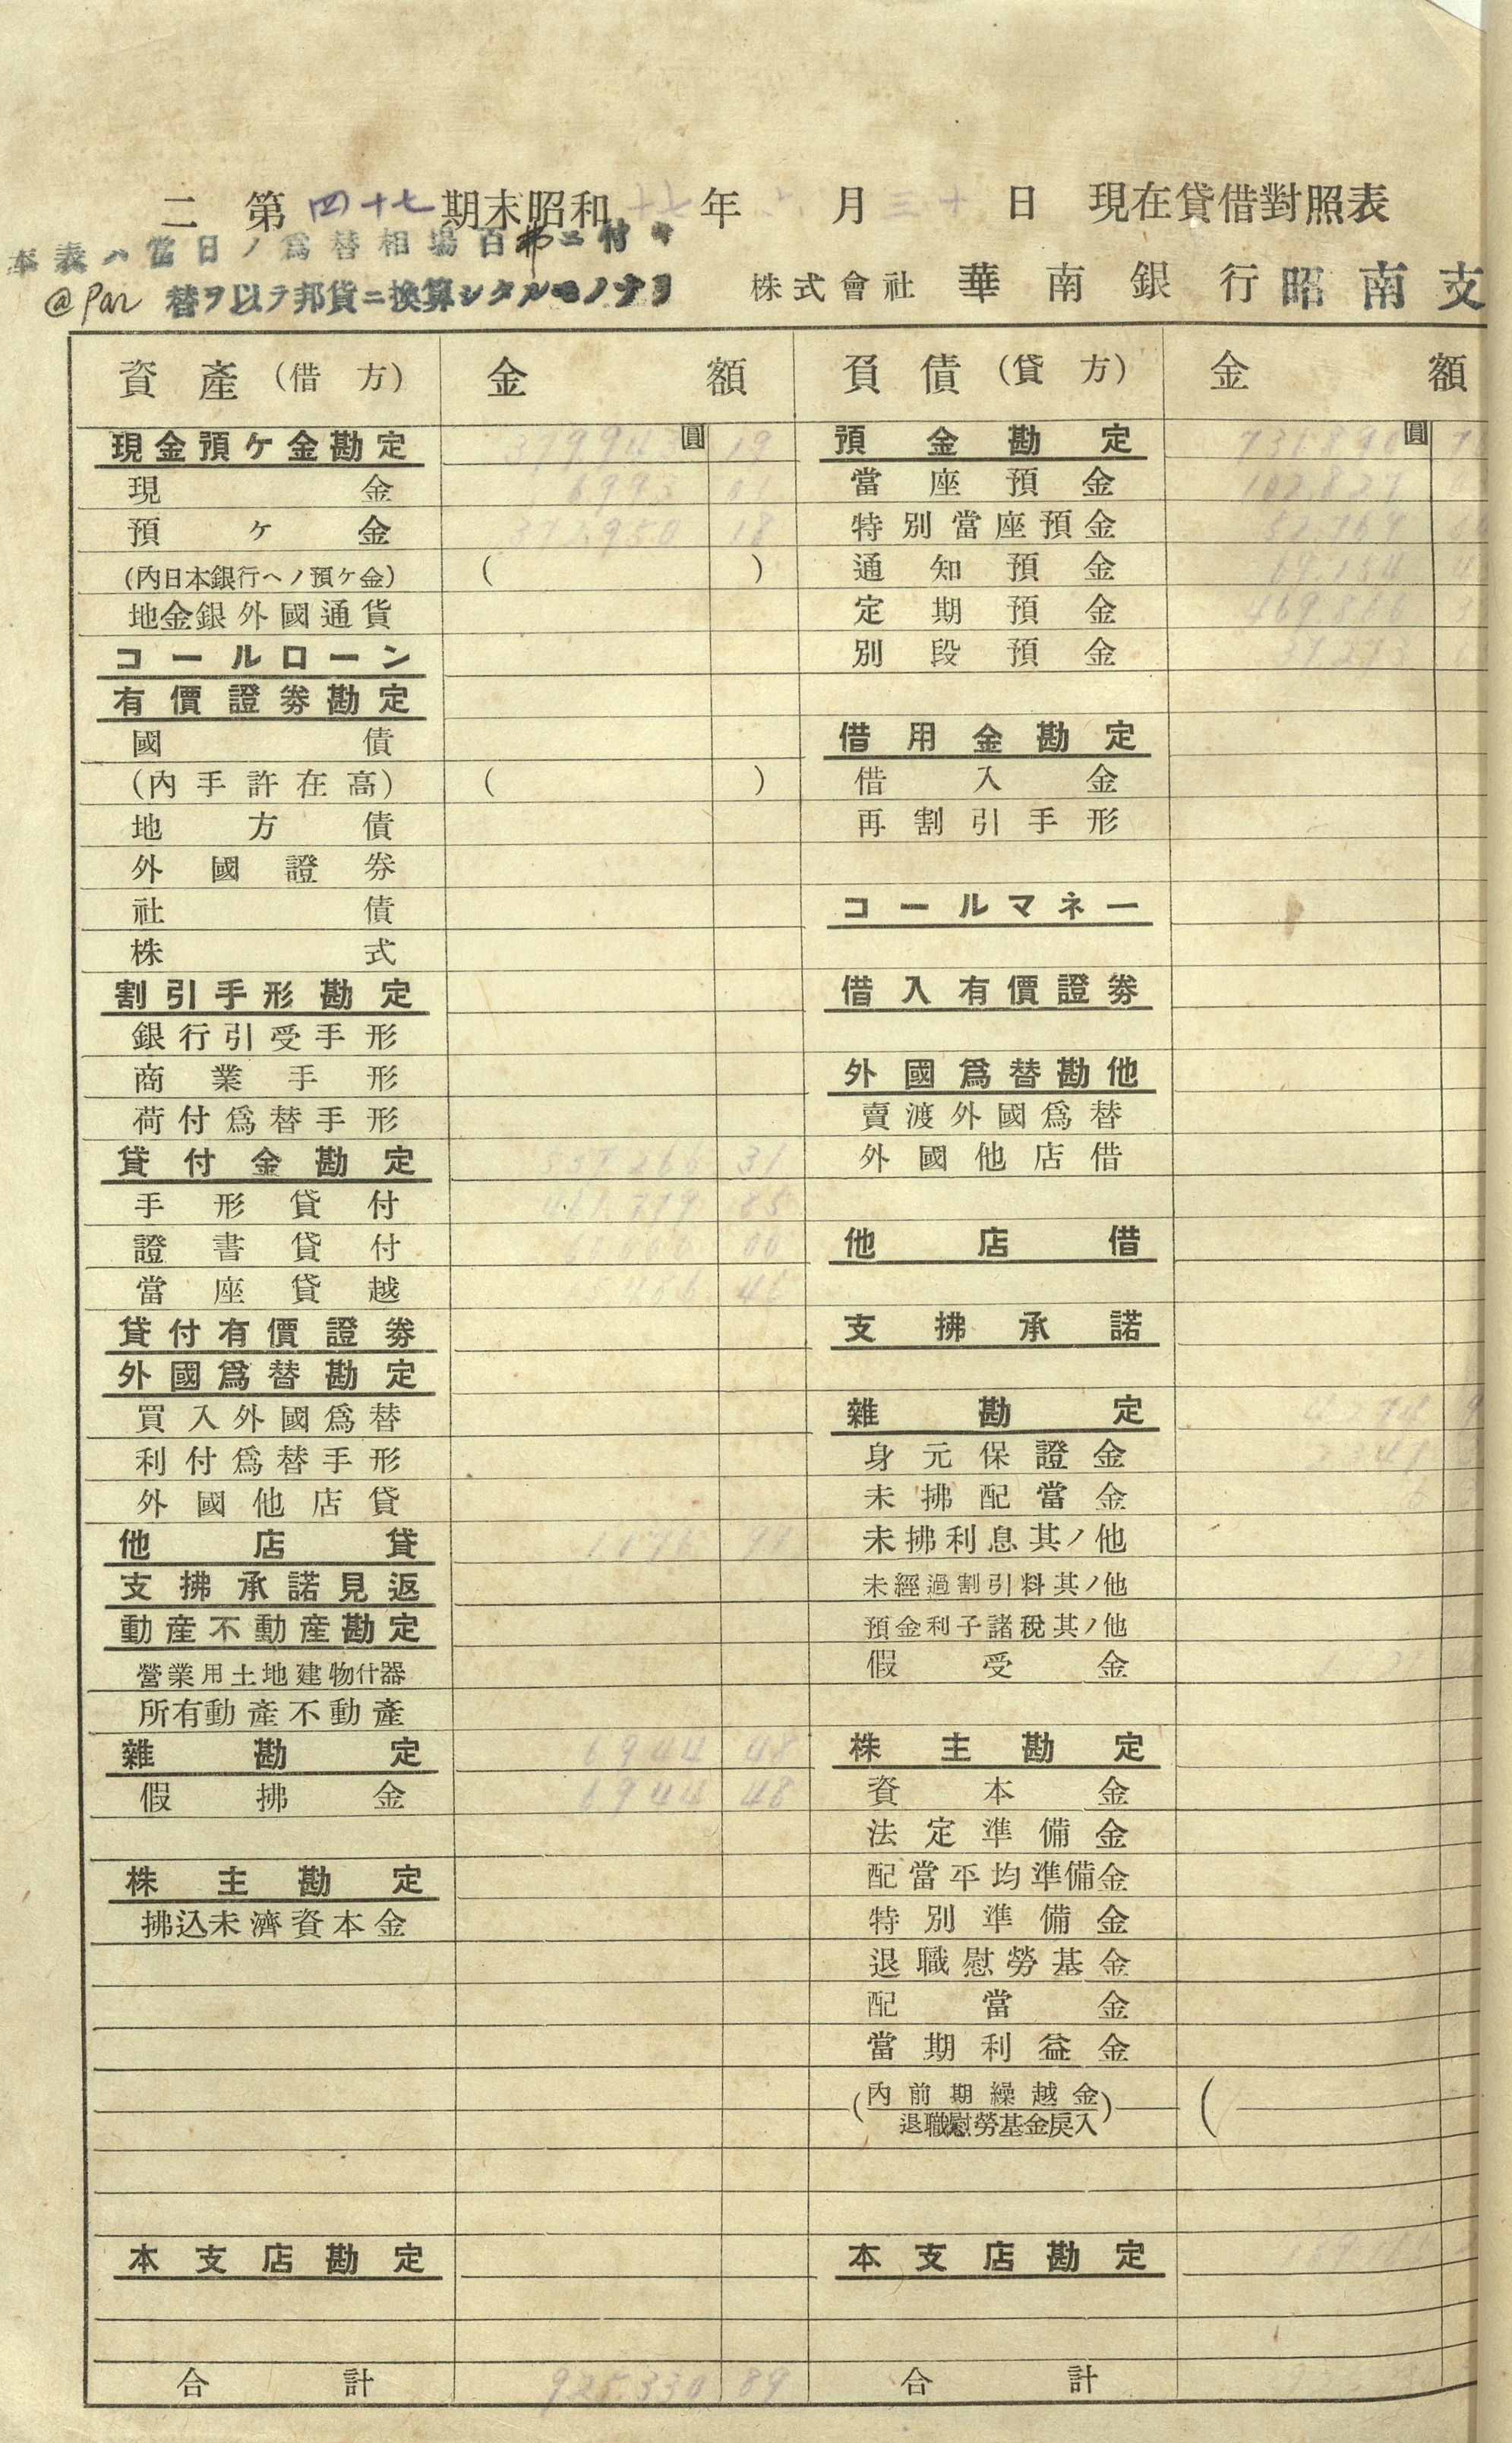 二 第四十七期末昭和十七年六月三十日 現在貸借對照表
本表ハ當日ノ爲替相場百弗ニ付キ
@Par 替ヲ以テ邦貨ニ換算シタルモノナリ
株式會社 華南銀行 昭南支
資產(借方) 金額 負債(貸方) 金額
現金預ケ金勘定 379943圓 19
現金 6993 01
預ケ金 372,950 18
(內日本銀行ヘノ預ケ金) ( )
地金銀外國通貨
コールローン
有價證券勘定
國債
(內手許在高) ( )
地方債
外國證券
社債
株式
割引手形勘定
銀行引受手形
商業手形
荷付爲替手形
貸付金勘定 537,266 31
手形貸付 461,779 85
證書貸付 00
當座貸越 46
貸付有價證券
外國爲替勘定
買入外國爲替
利付爲替手形
外國他店貸
他店貸 1176 91
支拂承諾見返
動產不動產勘定
營業用土地建物什器
所有動產不動產
雜勘定 6944 48
假拂金 6944 48
株主勘定
拂込未濟資本金
本支店勘定
合計 925,330 89
預金勘定 731,890圓
當座預金 102,827
特別當座預金 52,769
通知預金 69,154
定期預金 469,866
別段預金 37,273
借用金勘定
借入金
再割引手形
コールマネー
借入有價證券
外國爲替勘他
賣渡外國爲替
外國他店借
他店借
支拂承諾
雜勘定
身元保證金
未拂配當金
未拂利息其ノ他
未經過割引料其ノ他
預金利子諸稅其ノ他
假受金
株主勘定
資本金
法定準備金
配當平均準備金
特別準備金
退職慰勞基金
配當金
當期利益金
(內前期繰越金
退職慰勞基金戾入) (
本支店勘定
合計